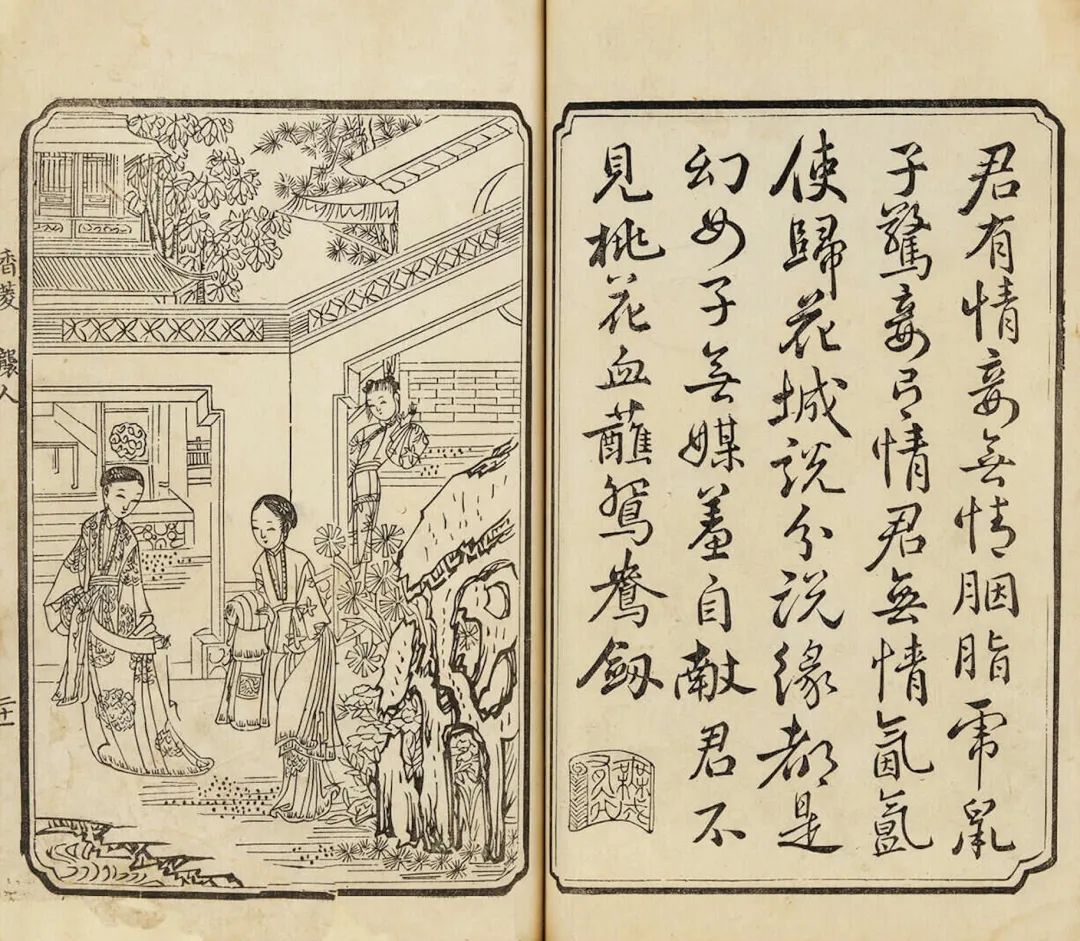 君有情妾無情胭脂乕鼠
子驚妾有情君無情氤氳
使歸花城說分說緣都是
幻女子無媒羞自獻君不
見桃花血蘸鴛鴦劔
香菱 襲人
二十一